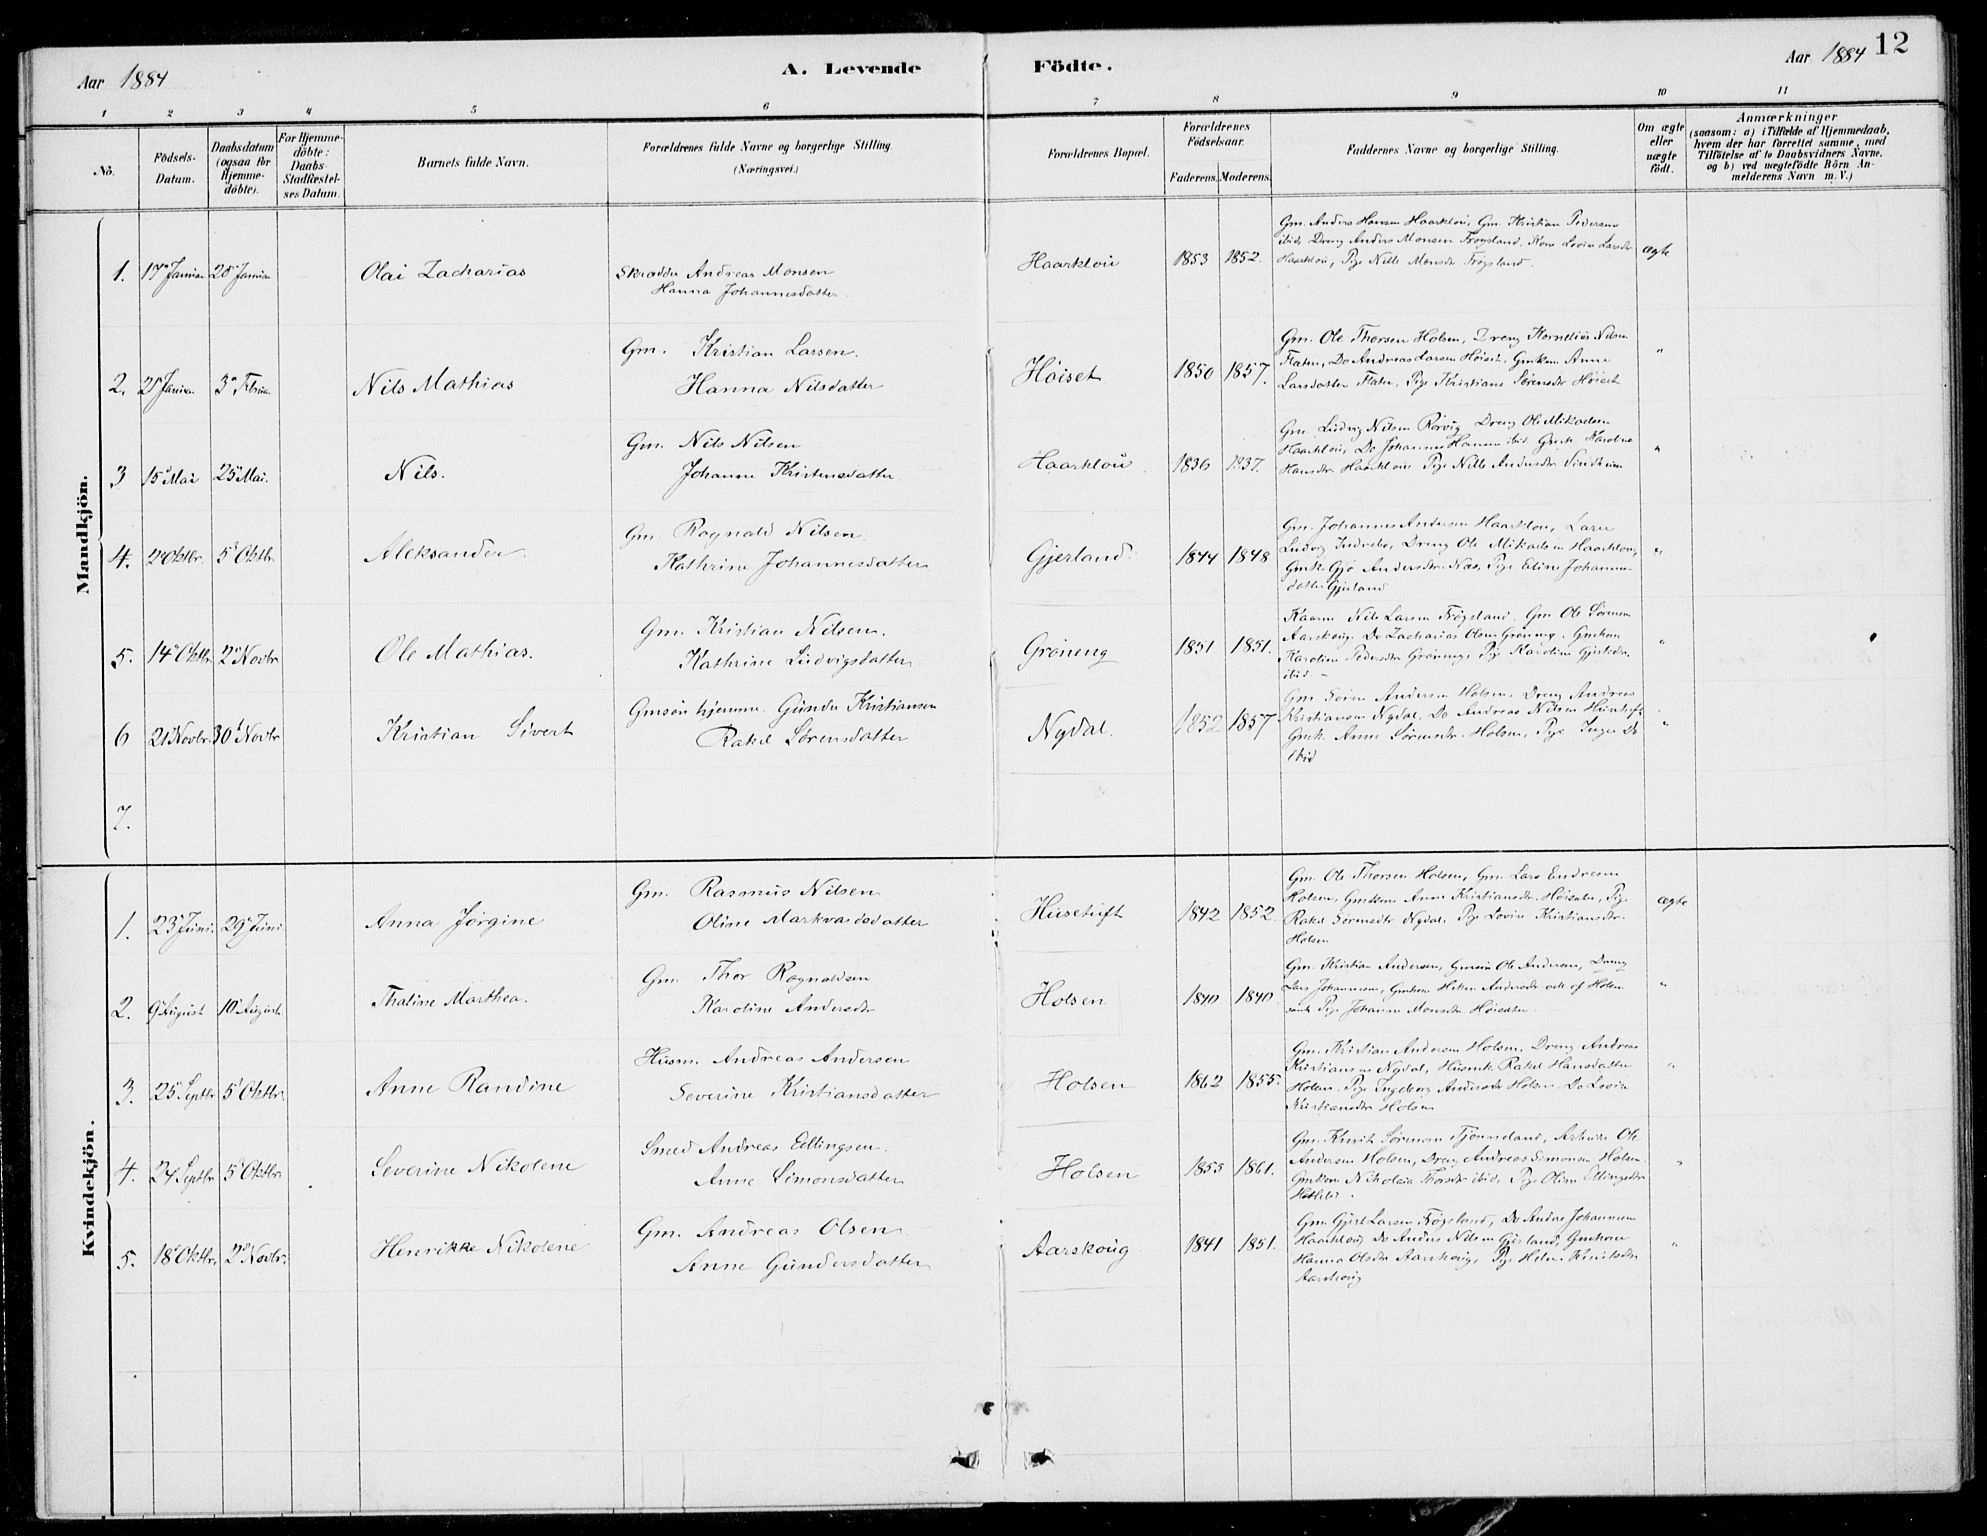 Aar 1884
A. Levende
Födte.
Aar 1884
12
1 2 3 4 5 6 7 8 9 10 11
No.
Födsels-
Datum.
Daabsdatum
(ogsaa for
Hjemme-
döbte).
For Hjemme-
döbte:
Daabs-
Stadfæstel-
ses Datum.
Barnets fulde Navn.
Forældrenes fulde Navne og borgerlige Stilling.
(Næringsvei.)
Forældrenes Bopæl.
Forældrenes
Födselsaar.
Faderens. Moderens.
Faddernes Navne og borgerlige Stilling.
Om ægte
eller
uægte
födt.
Anmærkninger
(saasom: a) i Tilfælde af Hjemmedaab,
hvem der har forrettet samme, med
Tilföielse af to Daabsvidners Navne.
og b) ved uægtefödte Börn An-
melderens Navn m. V.)
Mandkjön.
1. 17 Januar 20 Januar Olai Zacharias
Skrædder Andreas Monsen
Hanna Johannesdatter
Haarklou 1853 1852.
Gm. Anders Hansen Haarklou, Gm. Kristian Pedersen
ibid, Dreng Anders Monsen Frøysland, Kone Lovise Larsdtr
Haarklou, Pige Nille Monsdtr Frøysland.
ægte
2. Januar 3 Februar Nils Mathias
Gm. Kristian Larsen.
Hanna Nilsdatter
Höiset 1850 1857.
Gm. Ole Thorsen Holsen, Dreng Kornelius Nilsen
Flaten, Do Andreas Larsen Höiset, Gmkone Anne
Larsdatter Flaten, Pige Kristiane Sörensdtr Höiset
"
3 15 Mai 25 Mai. Nils.
Gm. Nils Nilsen
Johanne Kristensdatter
Haarklou 1836 1837.
Gm. Ludvig Nilsen Rørvig Dreng Ole Mikaelsen
Haarklou, Do Johannes Hansen ibid Gmk. Karoline
Hansdtr Haarklou Pige Nille Andersdtr
"
4. 2 Oktbr. 5 Oktbr. Aleksander.
Gm. Rognald Nilsen
Kathrine Johannesdatter
Gjerland. 1844 1848
Gm. Johannes Andersen Haarklou, Lærer
Ludvig Indrebø, Dreng Ole Mikaelsen Haarklou,
Gmk. Gjø Andersdtr. Næs, Pige Eline Johannes-
datter Gjerland
"
5. 14 Oktbr. 2 Novbr Ole Mathias.
Gm. Kristian Nilsen.
Kathrine Ludvigsdatter
Gröneng 1851 1851.
Kaarm. Nils Larsen Frøysland. Gm. Ole Sörensen
Aarskoug. Do Zacharias Olsen Gröneng. Gmkone
Karoline Pedersdtr Gröneng, Pige Karoline Gjertsdtr.
ibid -
"
6 21 Novbr. 30 Novbr Kristian Sivert
Gmsön hjemme. Gunder Kristiansen
Rakel Sörensdatter
Nydal. 1852 1857
Gm Sören Andersen Holsen. Dreng Andreas
Kristiansen Nydal, Do Andreas Nilsen Husetuft
Gmk. Anne Sörensdtr. Holsen, Pige Inger Do
ibid
"
7.
Kvindekjön.
1. 23 Juni. 29 Juni. Anna Jörgine
Gm. Rasmus Nilsen
Oline Markvardsdatter
Husetuft 1842 1852.
Gm. Ole Thorsen Holsen, Gm. Lars Endresen
Holsen, Gmkone Anne Kristiansdtr. Höisæter, Pige
Rakel Sörensdtr Nydal, Pige Lovise Kristiansdtr.
Holsen
ægte
2. 9 August 10 August Thaline Marthea.
Gm. Thor Rognaldsen
Karoline Andersdtr
Holsen 1840 1840
Gm. Kristian Andersen, Gmsön Ole Andersen, Dreng
Lars Johannesen, Gmkone Andersdtr alle af Holsen
samt Pige Johanne Monsdtr. Höisæter.
"
3. 25 Septbr 5 Oktbr. Anne Randine
Husm. Andreas Andersen
Severine Kristiansdatter
Holsen 1862 1855.
Gm. Kristian Andersen Holsen, Dreng Andreas
Kristiansen Nydal, Husmk. Rakel Hansdatter
Holsen. Pige Ingeborg Andersdtr Holsen, Do Lovise
Kristiansdtr Holsen
"
4. 24 Septbr 5 Oktbr. Severine Nikolene
Smed Andreas Ellingsen.
Anne Simonsdatter
Holsen 1855 1861.
Gm. Knut Sörensen Tjönneland, Ole
Andersen Holsen, Dreng Andreas Simonsen Holsen.
Gmkone Nikolaia Thorsdtr ibid, Pige Oline Ellingsdtr
"
5. 18 Oktbr. 2 Novbr. Henrikke Nikolene
Gm. Andreas Olsen
Anne Gundersdatter
Aarskoug 1841 1851.
Gm. Gjert Larsen Frøysland, Do Anders Johannesen
Haarklou Do Anders Nilsen Gjerland, Gmkone
Hanna Olsdtr Aarskoug, Pige Helene Knutsdtr
Aarskoug
"